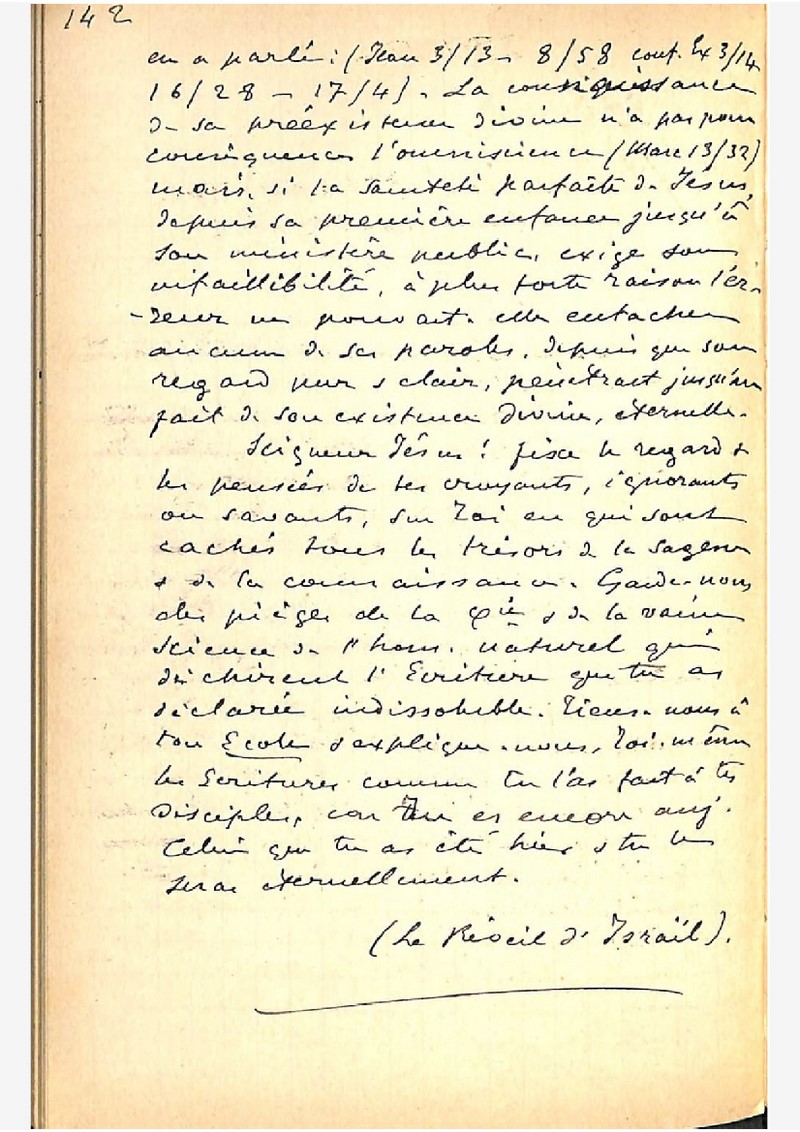 142
en a parlé : (Jean 3/13 - 8/58 conf. Ex 3/14
16/28 - 17/4). La connaissance
de sa préexistence divine n'a pas pour
conséquence l'omniscience (Marc 13/32)
mais, si la sainteté parfaite de Jésus,
depuis sa première enfance jusqu'à
son ministère public, exige son
infaillibilité, à plus forte raison l'er-
-reur ne pouvait-elle entacher
aucune de ses paroles, depuis que son
regard pur & clair, pénétrait jusqu'au
fait de son existence divine, éternelle.
Seigneur Jésus ! fixe le regard &
les pensées de tes croyants, ignorants
ou savants, sur Toi en qui sont
cachés tous les trésors de la sagesse
& de la connaissance. Garde-nous
des pièges de la φie & de la vaine
science de l'hom. naturel qui
déchirent l'Ecriture que tu as
déclarée indissoluble. Tiens-nous à
ton Ecole & explique-nous, Toi-même
les Ecritures comme tu l'as fait à tes
Disciples, car Tu es encore auj.
Celui que tu as été hier & tu le
seras éternellement.
(Le Réveil d'Israël).